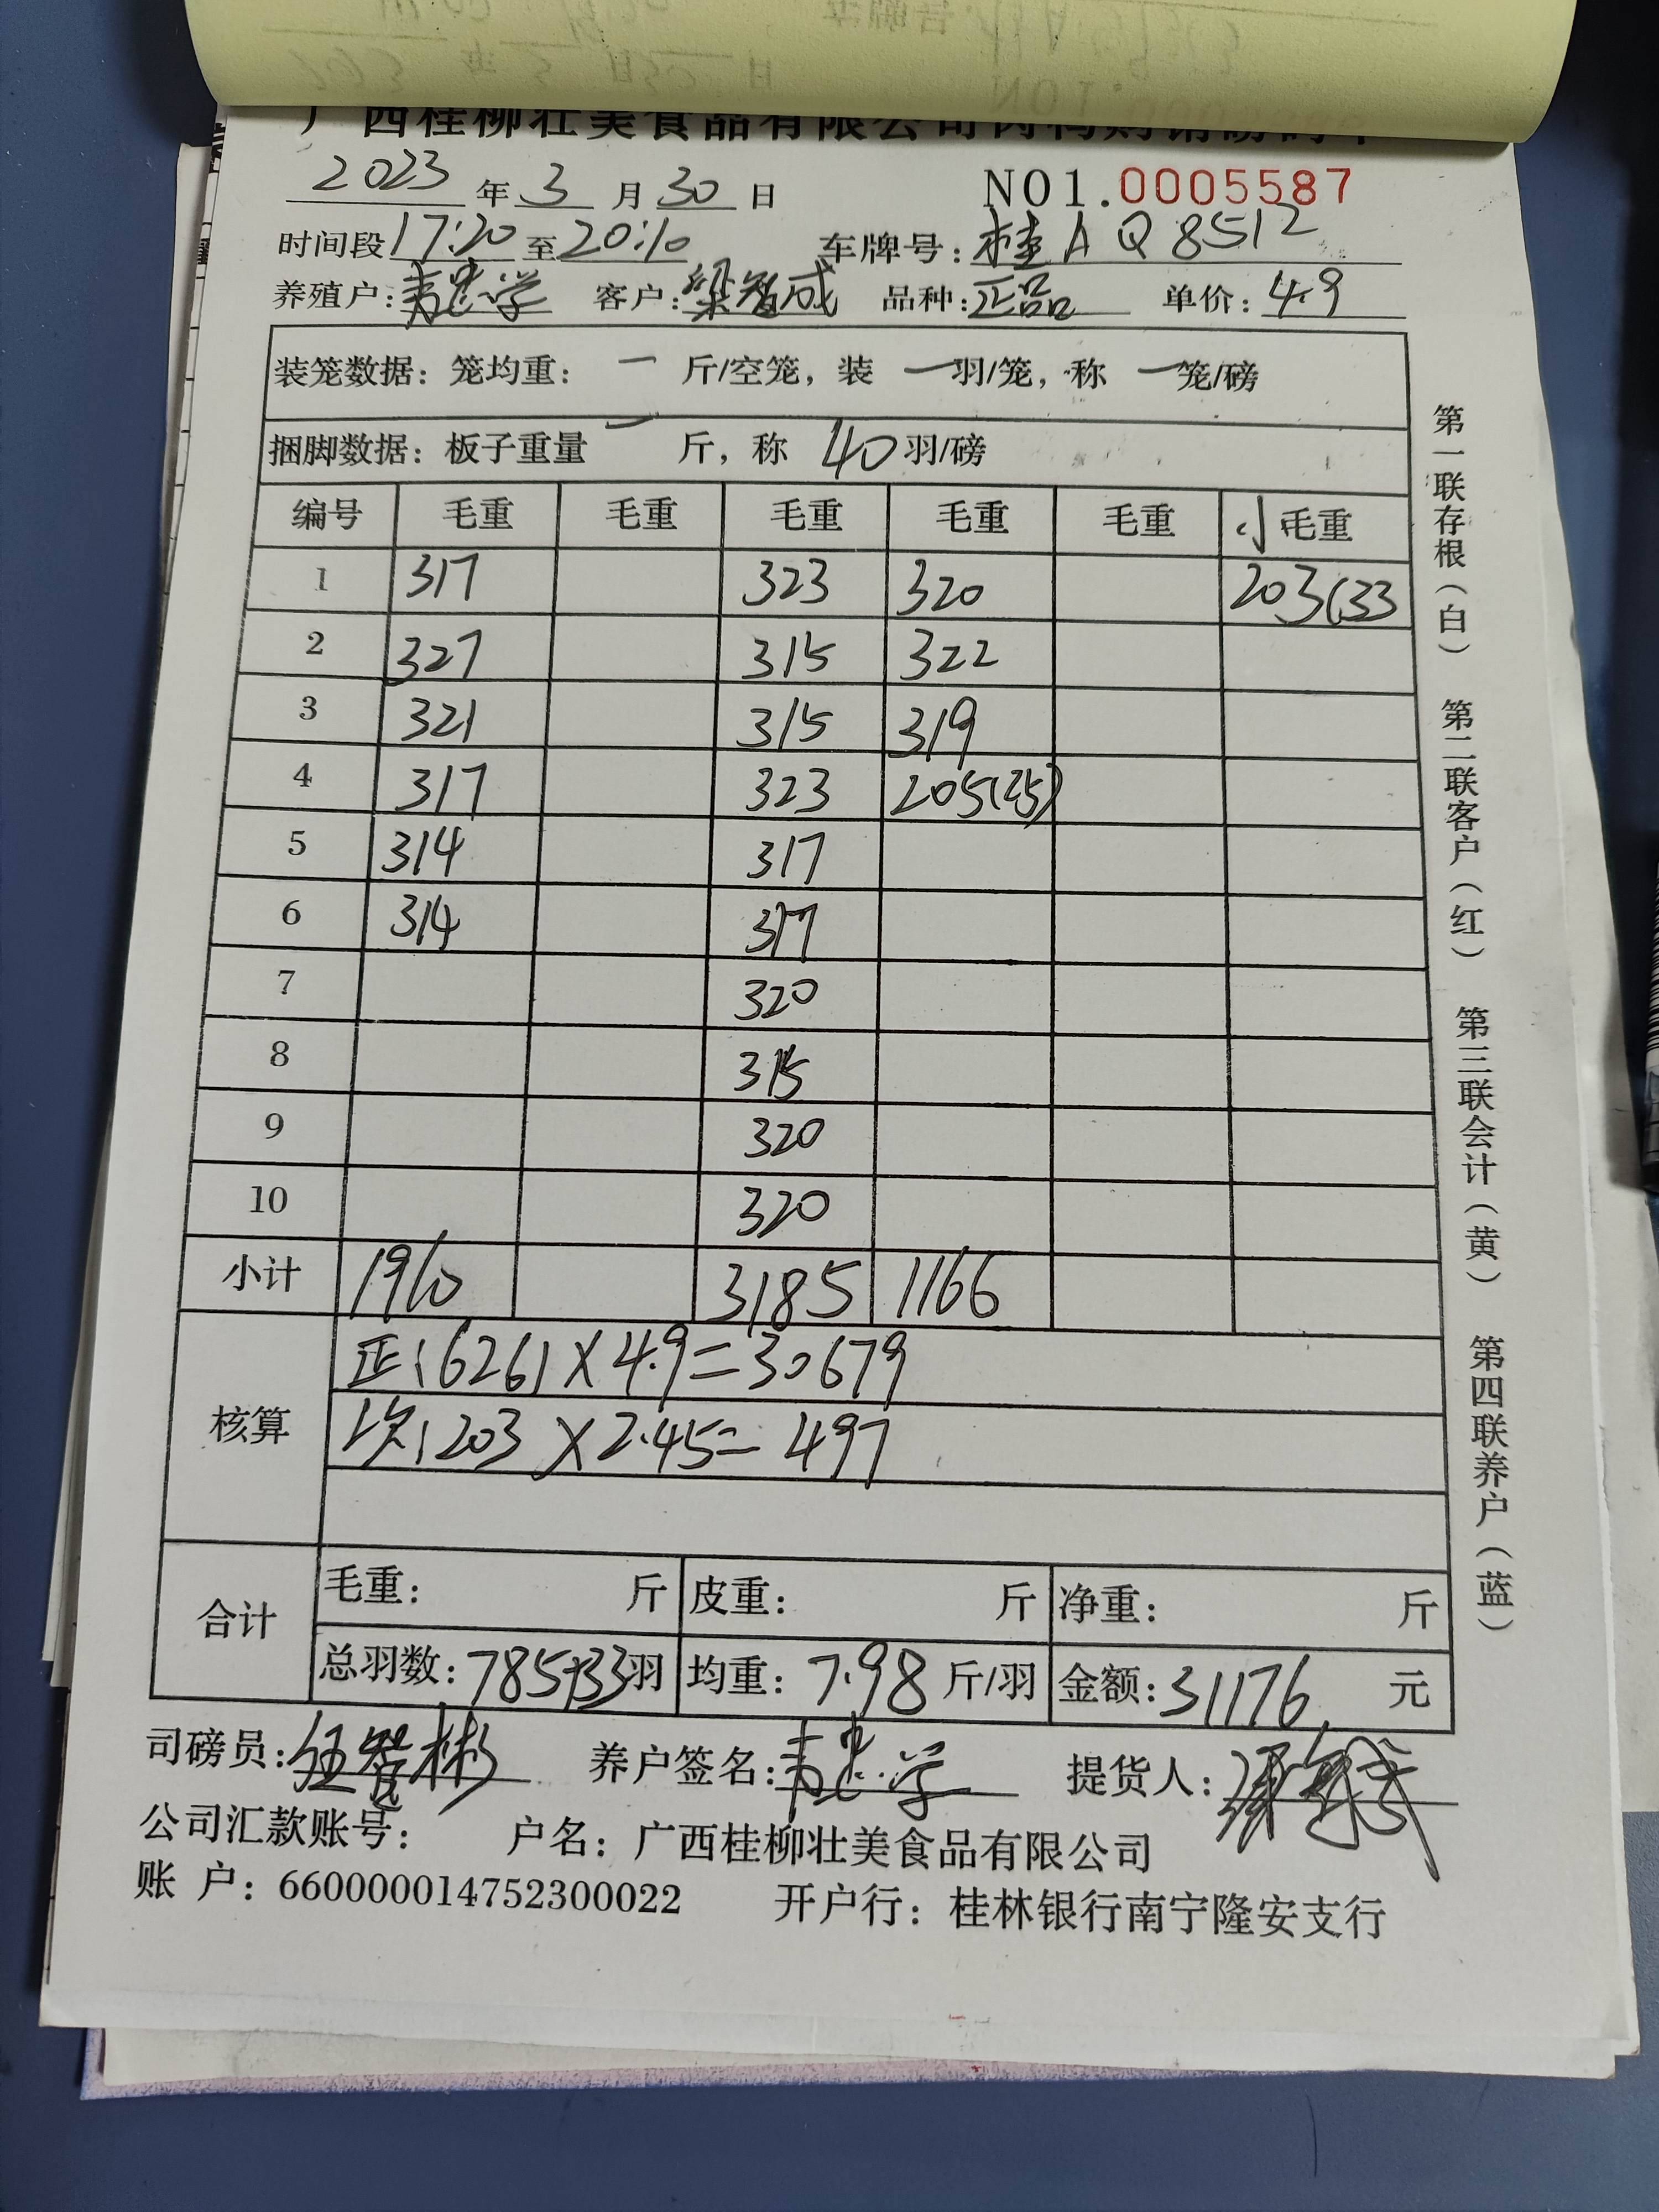 广西桂柳壮美食品有限公司肉鸭购销磅码单
2023年3月30日 NO1.0005587
时间段17:20至20:10 车牌号:桂A Q8512
养殖户:韦忠学 客户:梁智成 品种:正品 单价:4.9
装笼数据:笼均重: 一 斤/空笼,装 一羽/笼,称 一笼/磅
捆脚数据:板子重量 一 斤,称 40羽/磅
编号 毛重 毛重 毛重 毛重 毛重 小毛重
1 317 323 320 203(33
2 327 315 322
3 321 315 319
4 317 323 205(25)
5 314 317
6 314 317
7 320
8 315
9 320
10 320
小计 1910 3185 1166
核算 正:6261×4.9=30679
次:203×2.45=497
合计 毛重: 斤 皮重: 斤 净重: 斤
总羽数:785+33羽 均重:7.98斤/羽 金额:31176 元
司磅员:伍智彬 养户签名:韦忠学 提货人:
公司汇款账号: 户名:广西桂柳壮美食品有限公司
账 户:660000014752300022 开户行:桂林银行南宁隆安支行
第一联存根(白) 第二联客户(红) 第三联会计(黄) 第四联养户(蓝)